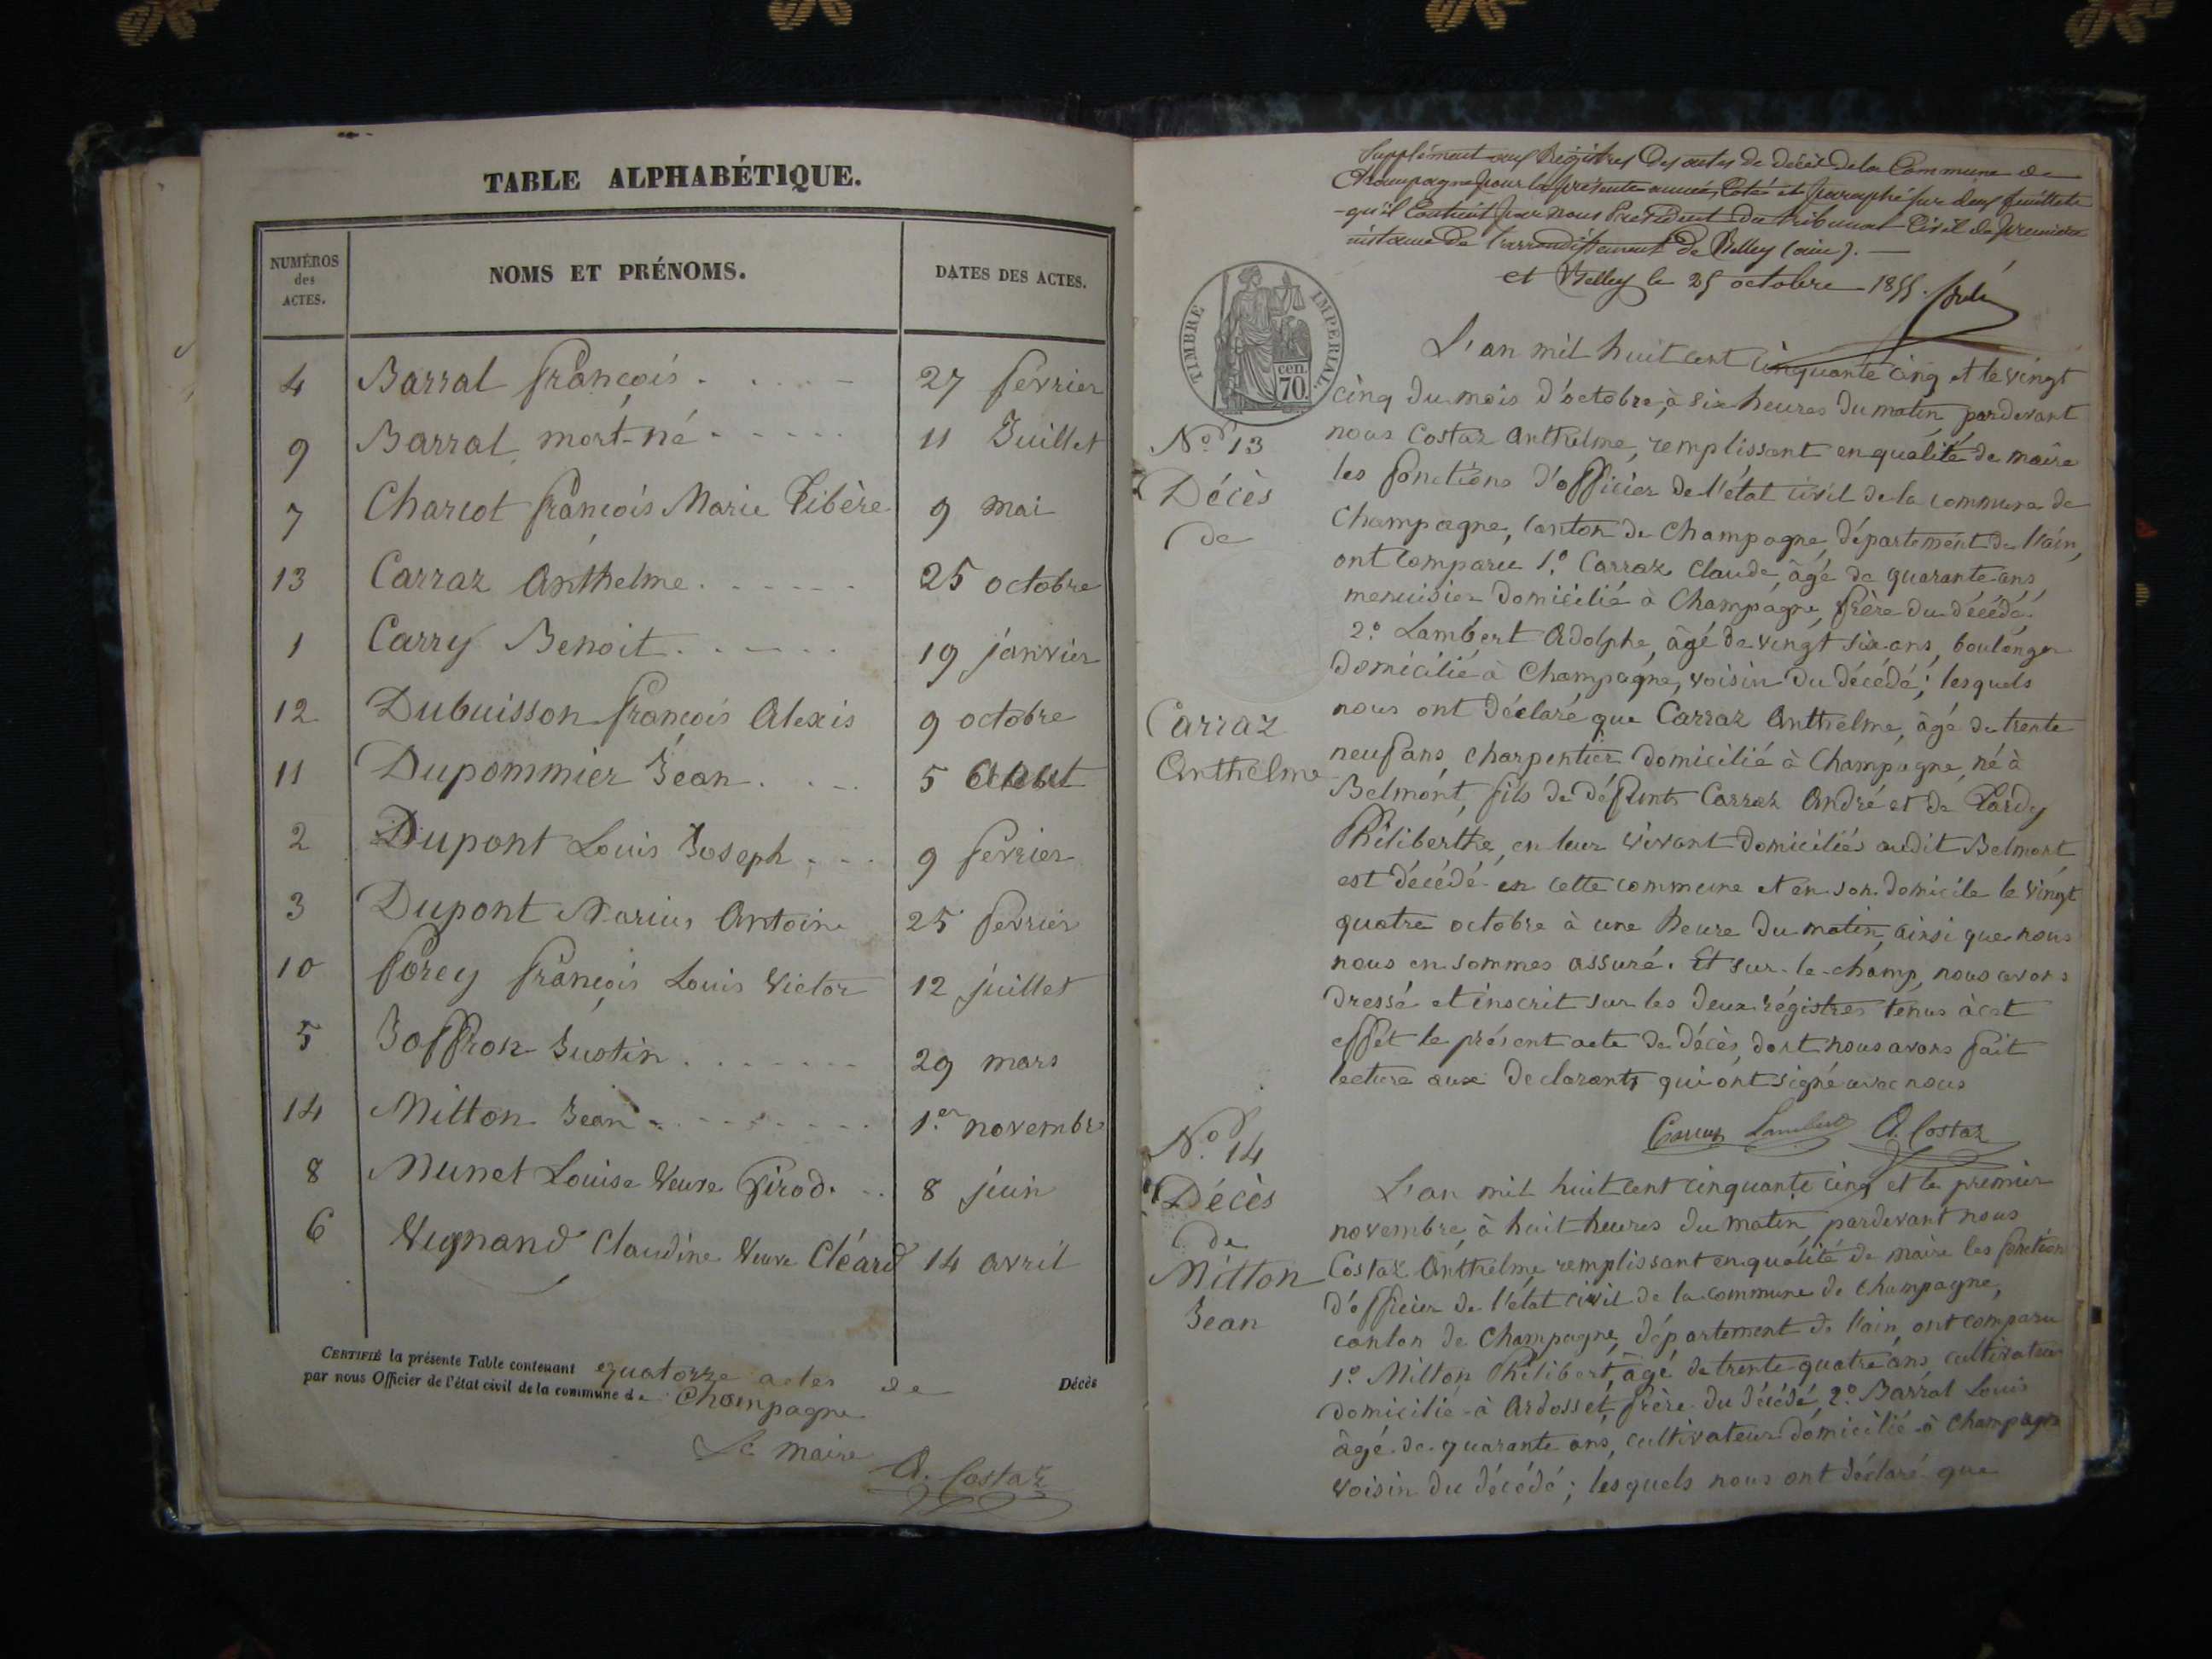 TABLE ALPHABÉTIQUE.
NUMÉROS des ACTES. NOMS ET PRÉNOMS. DATES DES ACTES.
4 Barral françois 27 fevrier
9 Barral mort-né 11 Juillet
7 Charcot françois Marie Tibère 9 mai
13 Carraz Anthelme 25 octobre
1 Carry Benoit 19 janvier
12 Dubuisson françois Alexis 9 octobre
11 Dupommier Jean 5
2 Dupont Louis Joseph 9 fevrier
3 Dupont Marius Antoine 25 fevrier
10 forey françois Louis Victor 12 juillet
5 Joffron Justin 29 mars
14 Mitton Jean 1er novembre
8 Munet Louise Veuve Girod 8 juin
6 Vugnand Claudine Veuve Cléard 14 avril
CERTIFIÉ la présente Table contenant quatorze actes de Décès
par nous Officier de l'état civil de la commune de Champagne
Le maire A. Costaz
Supplément aux Régistres Des actes de décès de la Commune de
Champagne pour la présente année, Coté et paraphé sur deux feuillets
qu'il Contient par nous President du tribunal Civil de premiere
instance De l'arrondissement de Belley (ain). —
et Belley le 25 octobre 1855.
TIMBRE IMPERIAL.
cen. 70.
No. 13
Décès
de
Carraz
Anthelme
L'an mil huit cent cinquante cinq et le vingt
cinq du mois d'octobre, à six heures du matin, pardevant
nous Costaz Anthelme, remplissant en qualité de maire
les fonctions d'officier de l'état civil de la commune de
Champagne, canton de Champagne, département de l'ain,
ont comparu 1.o Carraz Claude, âgé de quarante ans
menuisier domicilié à Champagne, frère du décédé.
2.o Lambert Adolphe, âgé de vingt six ans, boulanger
domicilié à Champagne, voisin du décédé; lesquels
nous ont déclaré que Carraz Anthelme, âgé de trente
neuf ans, charpentier domicilié à Champagne, né à
Belmont, fils de défunts Carraz André et de Tardy
Philiberthe, en leur vivant domiciliés audit Belmont
est décédé en cette commune et en son domicile le vingt
quatre octobre à une heure du matin, ainsi que nous
nous en sommes assuré. Et sur-le-champ, nous avons
dressé et inscrit sur les deux régistres tenus à cet
effet le présent acte de décès, dont nous avons fait
lecture aux declarants qui ont signé avec nous
Carraz Lambert A. Costaz
No. 14
Décès
de
Mitton
Jean
L'an mil huit cent cinquante cinq et le premier
novembre, à huit heures du matin, pardevant nous
Costaz Anthelme remplissant en qualité de maire les fonction
d'officier de l'état civil de la commune de Champagne,
canton de Champagne, département de l'ain, ont comparu
1.o Mitton Philibert, âgé de trente quatre ans, cultivateur
domicilié à Ardosset, frère du décédé, 2.o Barral Louis
âgé de quarante ans, cultivateur domicilié à Champagne
voisin du décédé; lesquels nous ont déclaré que